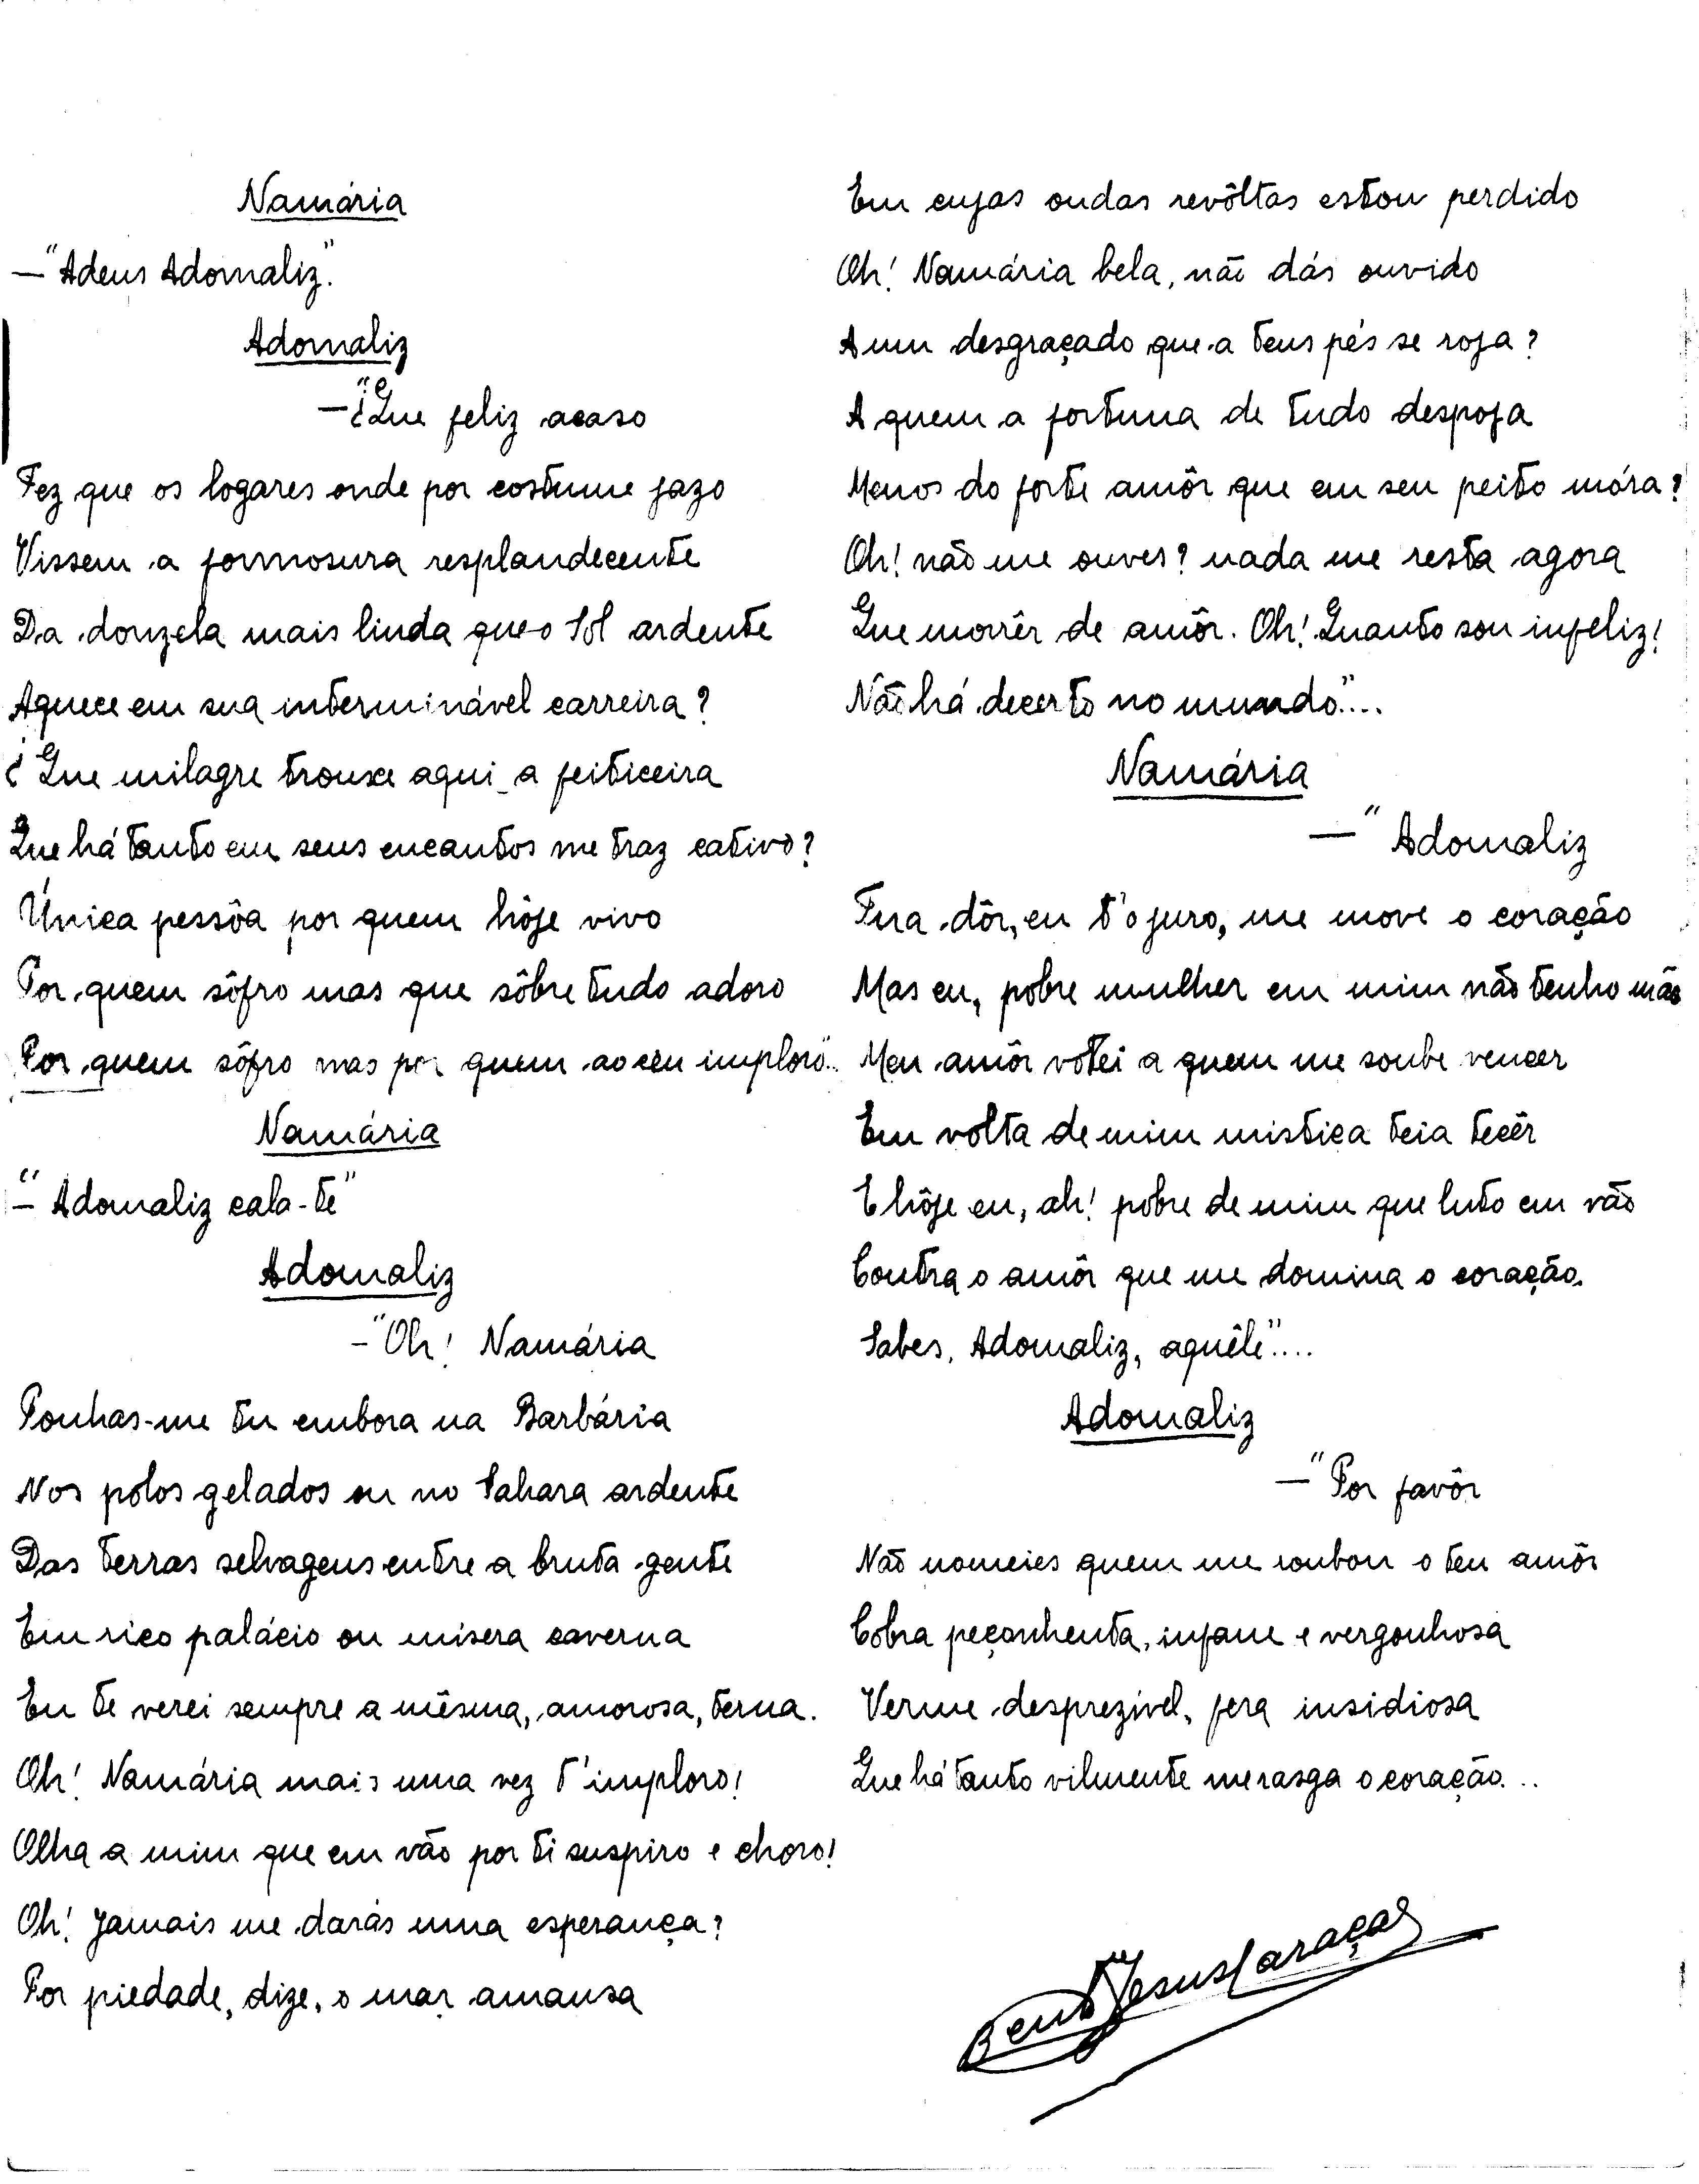 Namária
—"Adeus Adomaliz".
Adomaliz
—"¿Que feliz acaso
Fez que os logares onde por costume jazo
Vissem a formosura resplandecente
Da donzela mais linda que o Sol ardente
Aquece em sua interminável carreira?
¿Que milagre trouxe aqui a feiticeira
Que há tanto em seus encantos me traz cativo?
Única pessôa por quem hôje vivo
Por quem sôfro mas que sôbre tudo adoro
Por quem sôfro mas por quem ao céu imploro"..
Namária
—"Adomaliz cala-te"
Adomaliz
—"Oh! Namária
Ponhas-me tu embora na Barbária
Nos polos gelados ou no Sahara ardente
Das terras selvagens entre a bruta gente
Em rico palácio ou misera caverna
Eu te verei sempre a mêsma, amorosa, terna.
Oh! Namária mais uma vez t'imploro!
Olha a mim que em vão por ti suspiro e choro!
Oh! Jamais me darás uma esperança?
Por piedade, dize, o mar amansa
Em cujas ondas revôltas estou perdido
Oh! Namária bela, não dás ouvido
A um desgraçado que a teus pés se roja?
A quem a fortuna de tudo despoja
Menos do forte amôr que em seu peito móra?
Oh! não me ouves? nada me resta agora
Que morrêr de amôr. Oh! Quanto sou infeliz!
Não há decerto no mundo"....
Namária
—" Adomaliz
Tua dôr, eu t'o juro, me move o coração
Mas eu, pobre mulher em mim não tenho mão
Meu amôr votei a quem me soube vencer
Em volta de mim mistica teia tecêr
E hôje eu, ah! pobre de mim que luto em vão
Contra o amôr que me domina o coração.
Sabes, Adomaliz, aquêle"....
Adomaliz
—"Por favôr
Não nomeies quem me roubou o teu amôr
Cobra peçonhenta, infame e vergonhosa
Verme desprezivel, fera insidiosa
Que há tanto vilmente me rasga o coração...
Bento Jesus Caraça